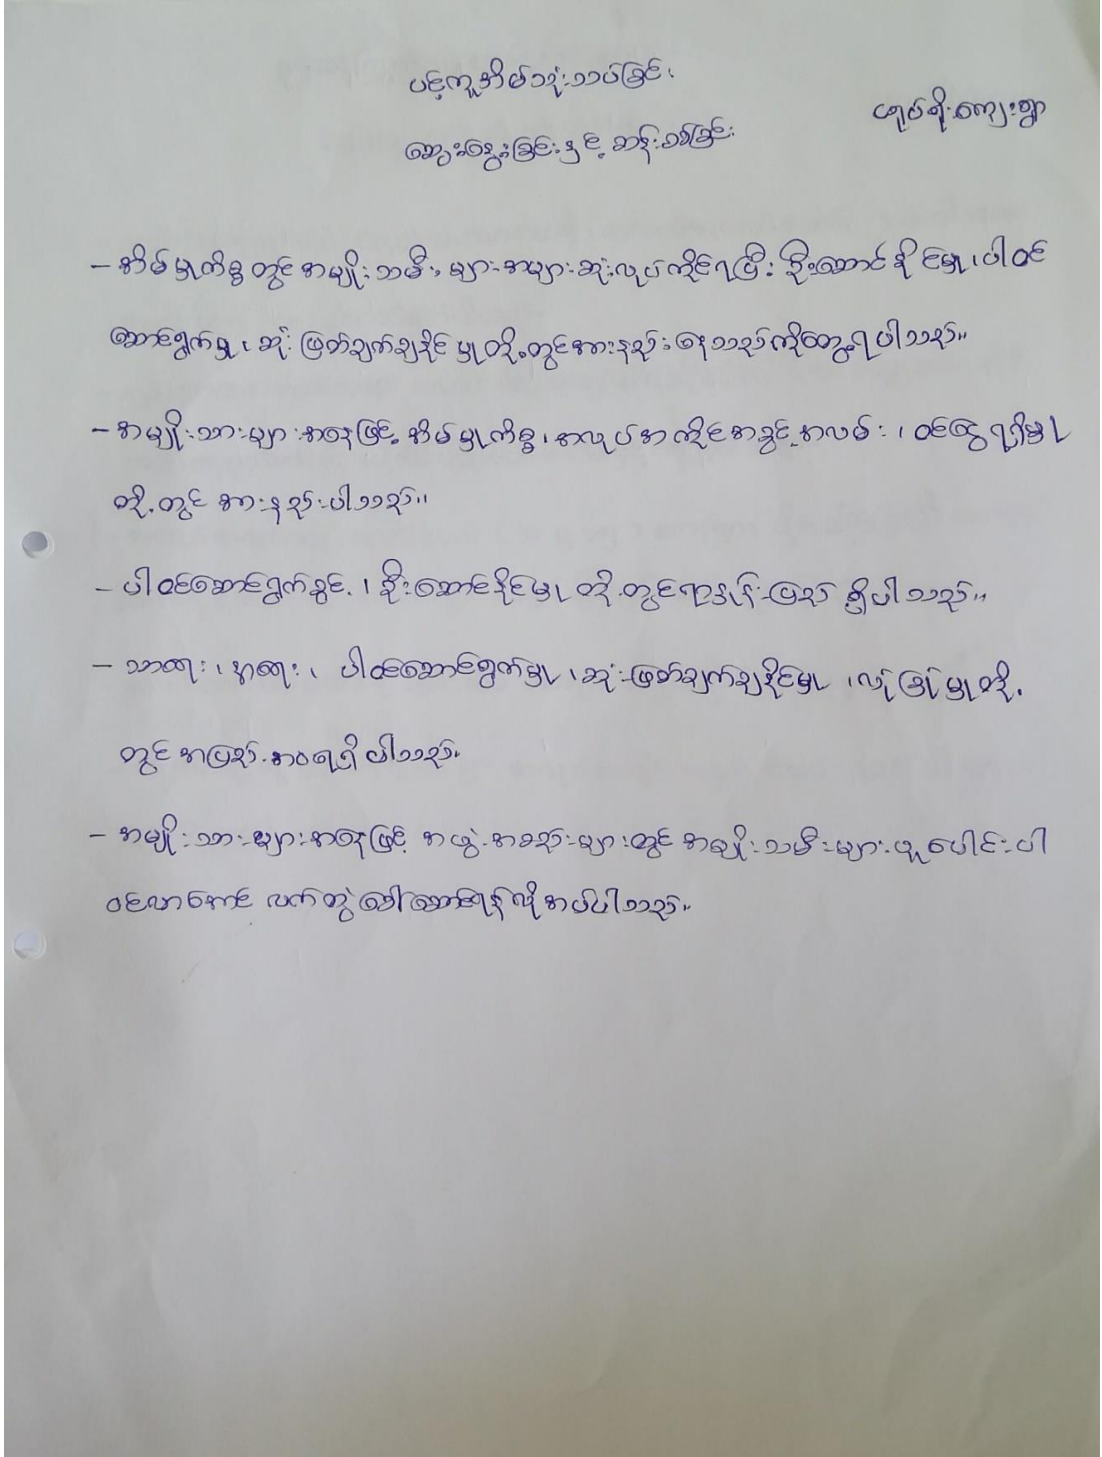 ပင့်ကူအိမ်သုံးသပ်ခြင်း
ကျေးရွာ
ဆွေးနွေးခြင်းနှင့် ဆန်းစစ်ခြင်း
- အိမ်မှုကိစ္စတွင် အမျိုးသမီးများ အများဆုံးလုပ်ကိုင်ရပြီး ဦးဆောင်နိုင်မှု၊ ပါဝင်
ဆောင်ရွက်မှု၊ ဆုံးဖြတ်ချက်ချနိုင်မှုတို့တွင် အားနည်းနေသည်ကိုတွေ့ရပါသည်။
- အမျိုးသားများအနေဖြင့် အိမ်မှုကိစ္စ၊ အလုပ်အကိုင်အခွင့်အလမ်း၊ ဝင်ငွေရရှိမှု
တို့တွင် အားနည်းပါသည်။
- ပါဝင်ဆောင်ရွက်ခွင့်၊ ဦးဆောင်နိုင်မှု တို့တွင်ရာနှုန်းပြည့် ရှိပါသည်။
- သာရေး၊ နာရေး၊ ပါဝင်ဆောင်ရွက်မှု၊ ဆုံးဖြတ်ချက်ချနိုင်မှု၊ လုံခြုံမှုတို့
တွင် အပြည့်အဝရရှိပါသည်။
- အမျိုးသားများအနေဖြင့် အဖွဲ့အစည်းများတွင် အမျိုးသမီးများ ပူးပေါင်းပါ
ဝင်လာအောင် လက်တွဲခေါ်ဆောင်ရန်လိုအပ်ပါသည်။